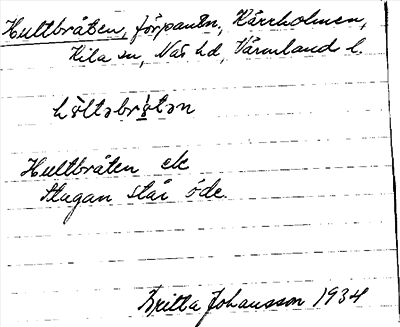 Hultbråten, förpantn, Kärrholmen,
Kila sn, Näs hd, Värmlands l.
Hultbråten ek
Stugan står öde.
Britta Johansson 1934